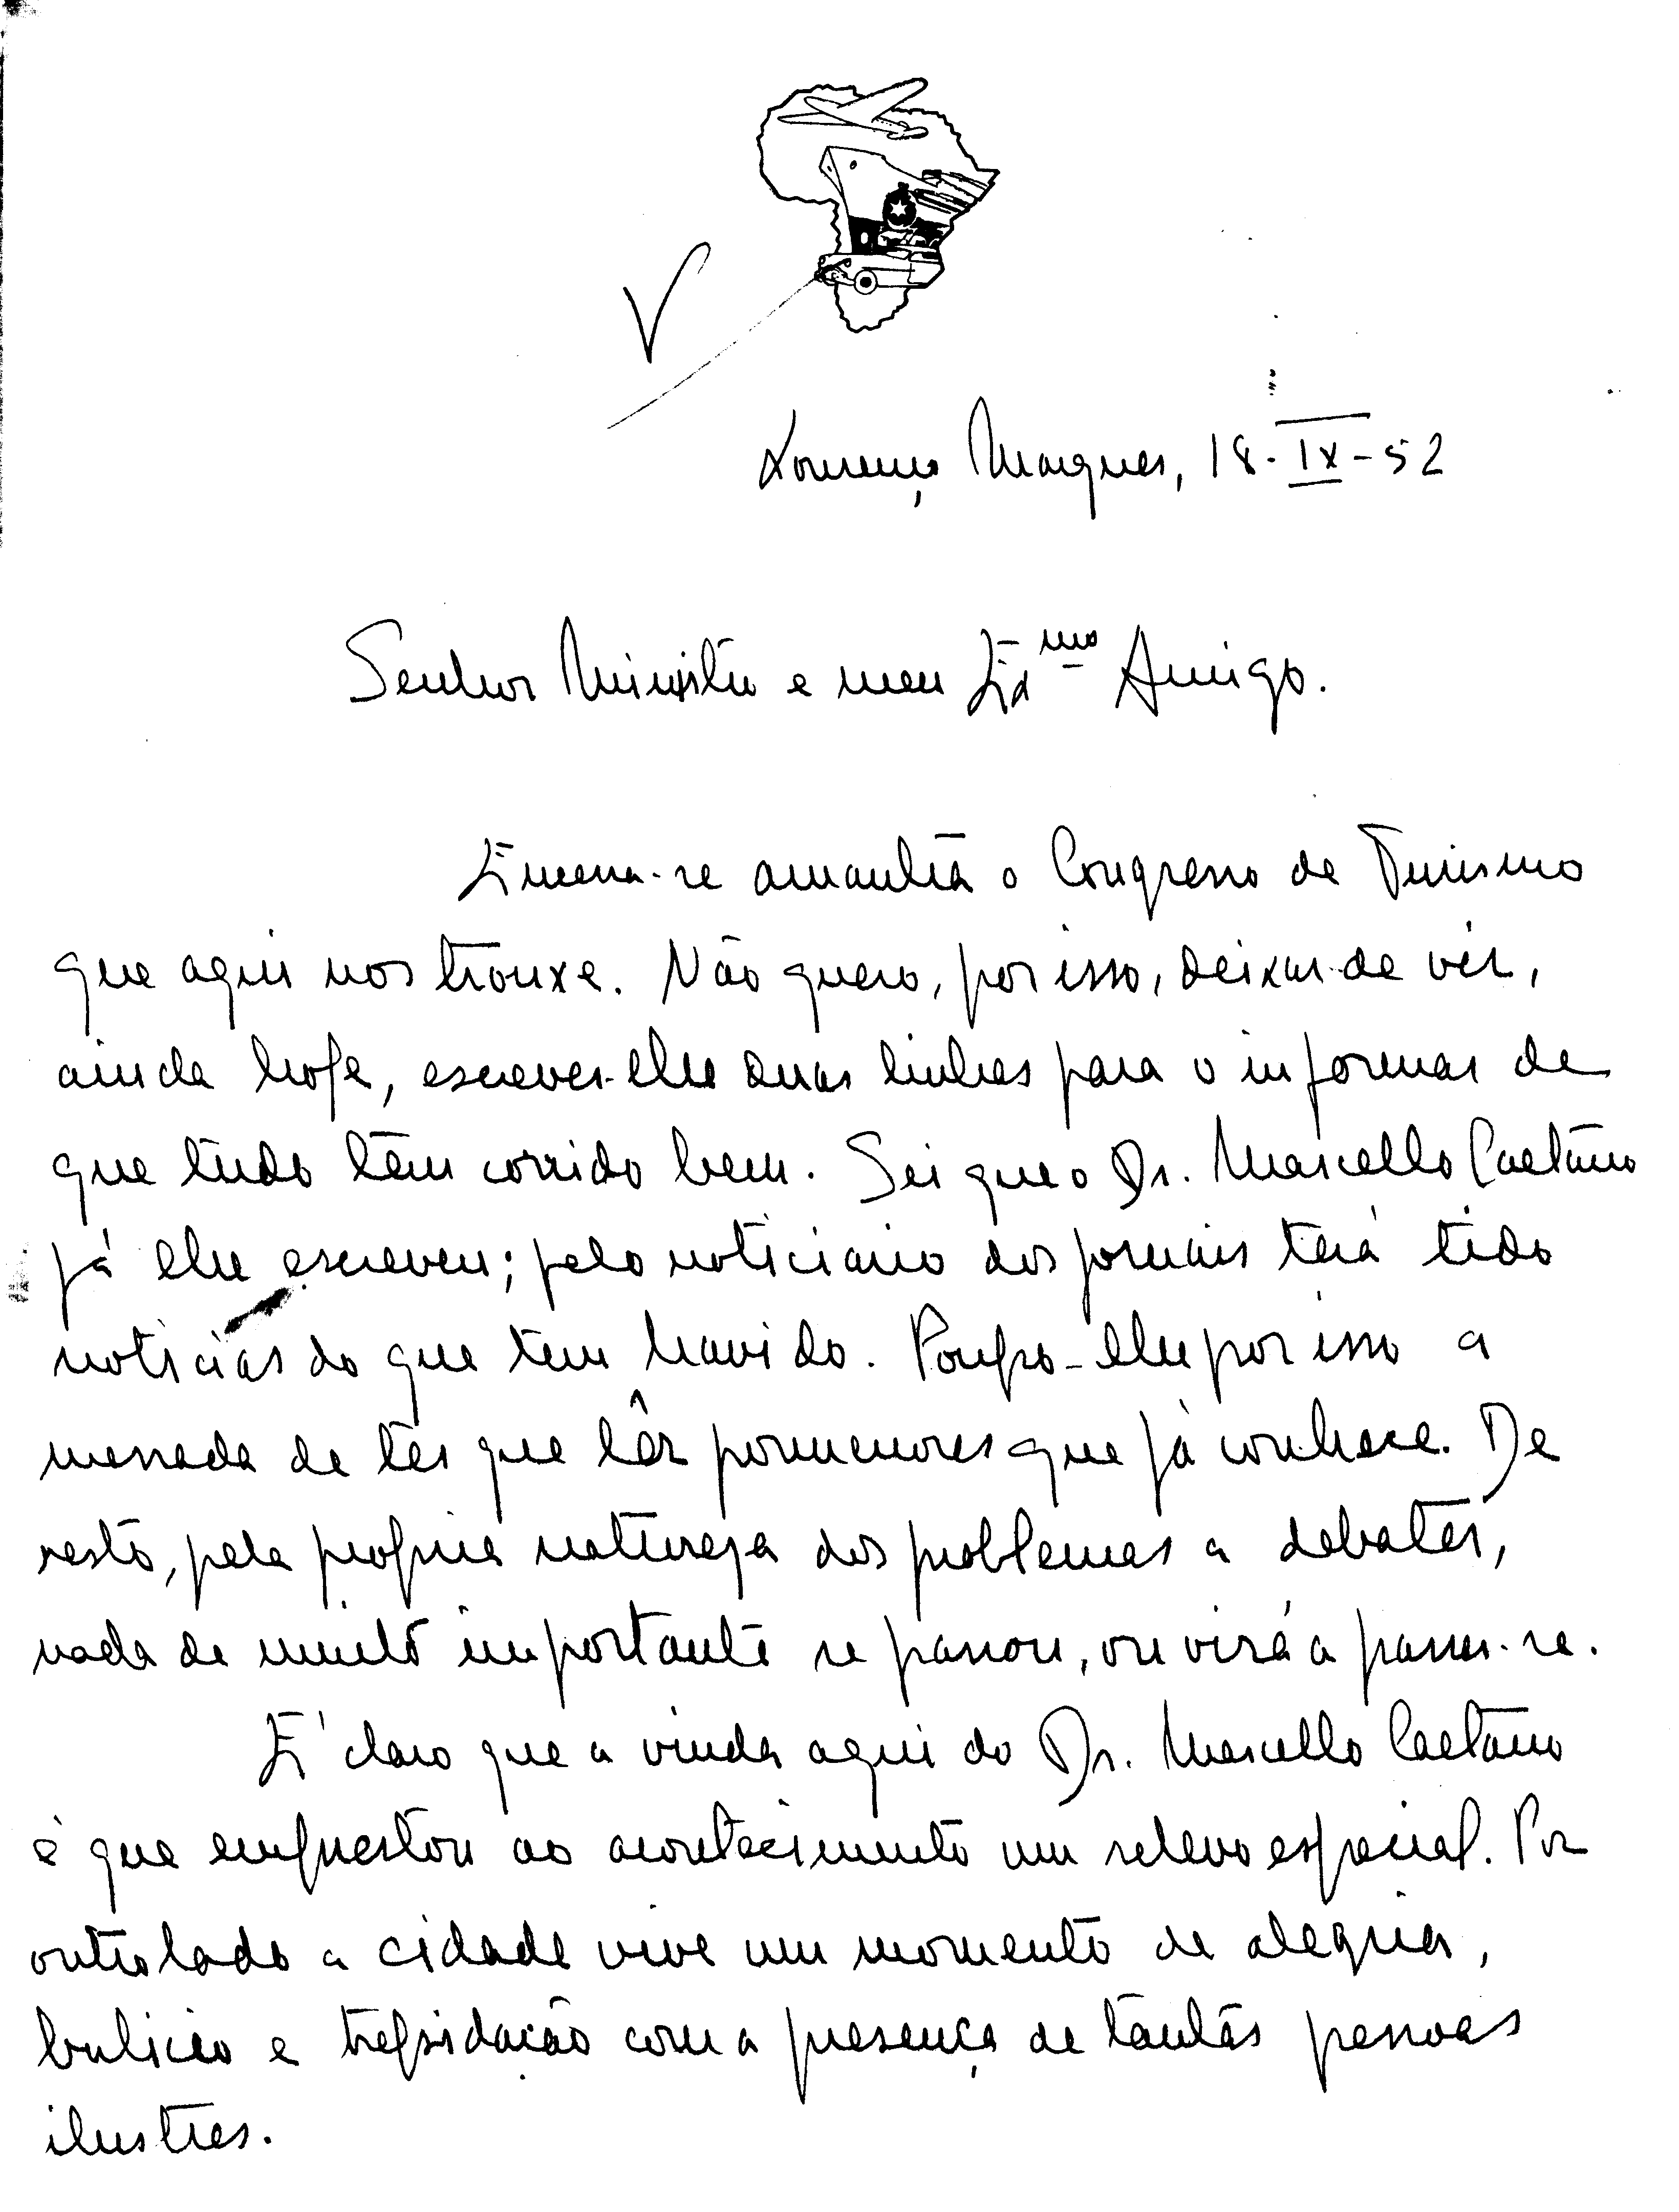 Lourenço Marques, 18-IX-52
Senhor Ministro e meu Exmo Amigo.
Encerra-se amanhã o Congresso de Turismo
que aqui nos trouxe. Não quero, por isso, deixar de vir,
ainda hoje, escrever-lhe duas linhas para o informar de
que tudo têm corrido bem. Sei que o Dr. Marcello Caetano
já lhe escreveu; pelo noticiario dos jornais terá tido
noticias do que tem havido. Poupo-lhe por isso a
massada de ter que lêr pormenores que já conhece. De
resto, pela propria natureza dos problemas a debater,
nada de muito importante se passou, ou virá a passar-se.
E' claro que a vinda aqui do Dr. Marcello Caetano
é que emprestou ao acontecimento um relevo especial. Por
outro lado a cidade vive um momento de alegria,
bulicio e trepidação com a presença de tantas pessoas
ilustres.